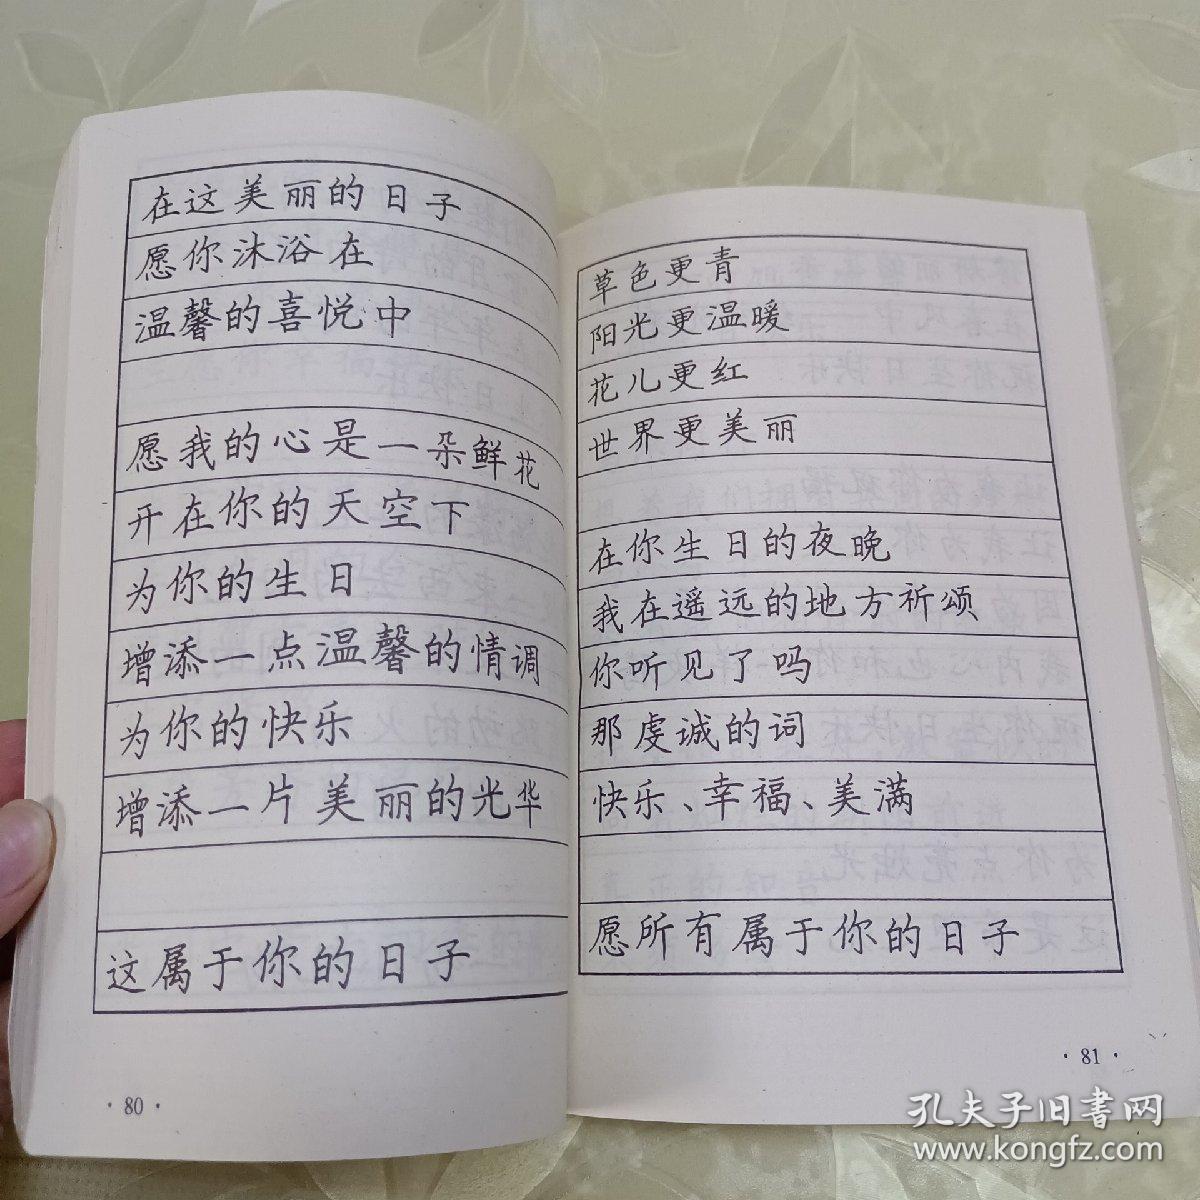 在这美丽的日子
愿你沐浴在
温馨的喜悦中
愿我的心是一朵鲜花
开在你的天空下
为你的生日
增添一点温馨的情调
为你的快乐
增添一片美丽的光华
这属于你的日子
·80·
草色更青
阳光更温暖
花儿更红
世界更美丽
在你生日的夜晚
我在遥远的地方祈颂
你听见了吗
那虔诚的词
快乐、幸福、美满
愿所有属于你的日子
·81·
孔夫子旧书网
www.kongfz.com